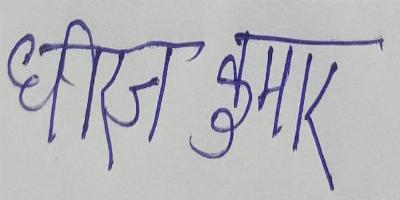 धीरज कुमार